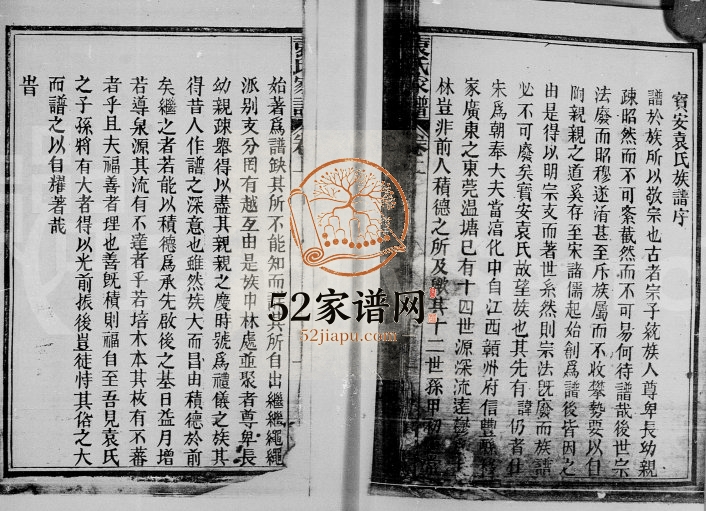 寶安袁氏族譜序
譜於族所以敬宗也古者宗子統族人尊卑長幼親
疎昭然而不可紊截然而不可易何待譜哉後世宗
法廢而昭穆遂淆甚至斥族屬而不收攀勢要以自
附親親之道奚存至宋諸儒起始創爲譜後皆因之
由是得以明宗支而著世系然則宗法旣廢而族譜
必不可廢矣寶安袁氏故望族也其先有諱仍者仕
宋爲朝奉大夫當淳化中自江西贛州府信豐
家廣東之東莞温塘已有十四世源深流遠
林豈非前人積德之所及歟其十二世孫甲
袁氏家譜 卷一
始著爲譜缺其所不能知而 其所自出繼繼繩繩
派别支分罔有越互由是族中林處並聚者尊卑長
幼親疎舉得以盡其親親之度時號爲禮儀之族其
得昔人作譜之深意也雖然族大而昌由積德於前
矣繼之者若能以積德爲承先啟後之基日益月增
若導泉源其流有不達者乎若培木本其枝有不蕃
者乎且夫福善者理也善旣積則福自至吾見袁氏
之子孫將有大者得以光前振後豈徒恃其俗之大
而譜之以自耀著哉
旹
52家谱网
52jiapu.com